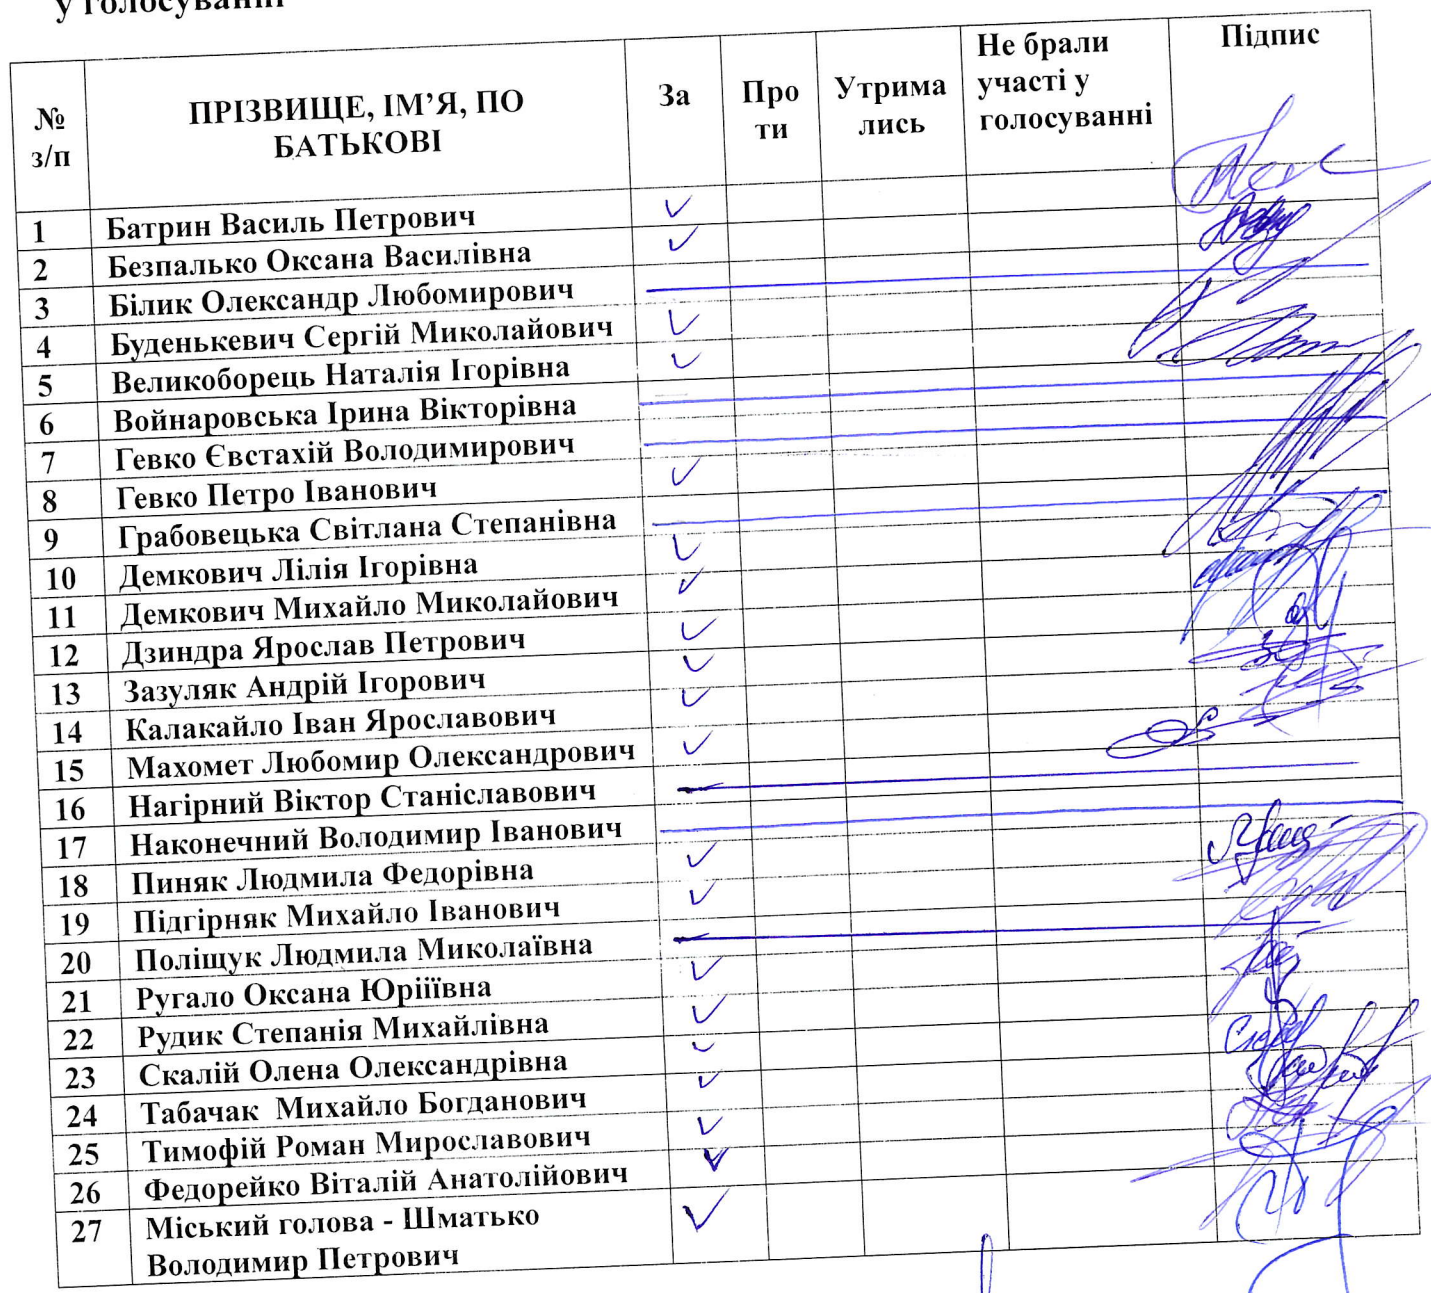 у голосуванні
№ з/п
ПРІЗВИЩЕ, ІМ’Я, ПО БАТЬКОВІ
За
Про ти
Утрима лись
Не брали участі у голосуванні
Підпис
1 Батрин Василь Петрович
2 Безпалько Оксана Василівна
3 Білик Олександр Любомирович
4 Буденькевич Сергій Миколайович
5 Великоборець Наталія Ігорівна
6 Войнаровська Ірина Вікторівна
7 Гевко Євстахій Володимирович
8 Гевко Петро Іванович
9 Грабовецька Світлана Степанівна
10 Демкович Лілія Ігорівна
11 Демкович Михайло Миколайович
12 Дзиндра Ярослав Петрович
13 Зазуляк Андрій Ігорович
14 Калакайло Іван Ярославович
15 Махомет Любомир Олександрович
16 Нагірний Віктор Станіславович
17 Наконечний Володимир Іванович
18 Пиняк Людмила Федорівна
19 Підгірняк Михайло Іванович
20 Поліщук Людмила Миколаївна
21 Ругало Оксана Юріїївна
22 Рудик Степанія Михайлівна
23 Скалій Олена Олександрівна
24 Табачак Михайло Богданович
25 Тимофій Роман Мирославович
26 Федорейко Віталій Анатолійович
27 Міський голова - Шматько
Володимир Петрович